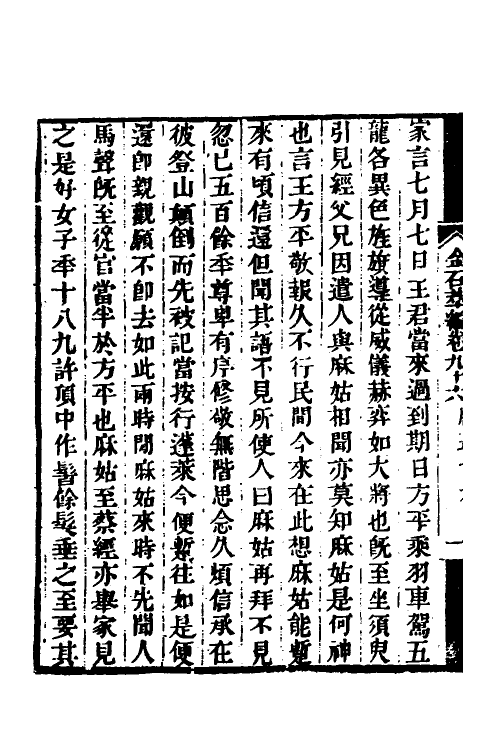 金石萃編卷九十六
家言七月七日王君當來過到期日方平乘羽車駕五
龍各異色旌旗導從威儀赫弈如大將也旣至坐須臾
引見經父兄因遣人與麻姑相聞亦莫知麻姑是何神
也言王方平敬報久不行民間今來在此想麻姑能蹔
來有頃信還但聞其語不見所使人曰麻姑再拜不見
忽已五百餘年尊卑有序修敬無階思念久煩信承在
彼登山顛倒而先被記當按行蓬萊今便蹔往如是便
還即親觀願不即去如此兩時閒麻姑來時不先聞人
馬聲旣至從官當半於方平也麻姑至蔡經亦舉家見
之是好女子年十八九許頂中作髻餘髮垂之至要其